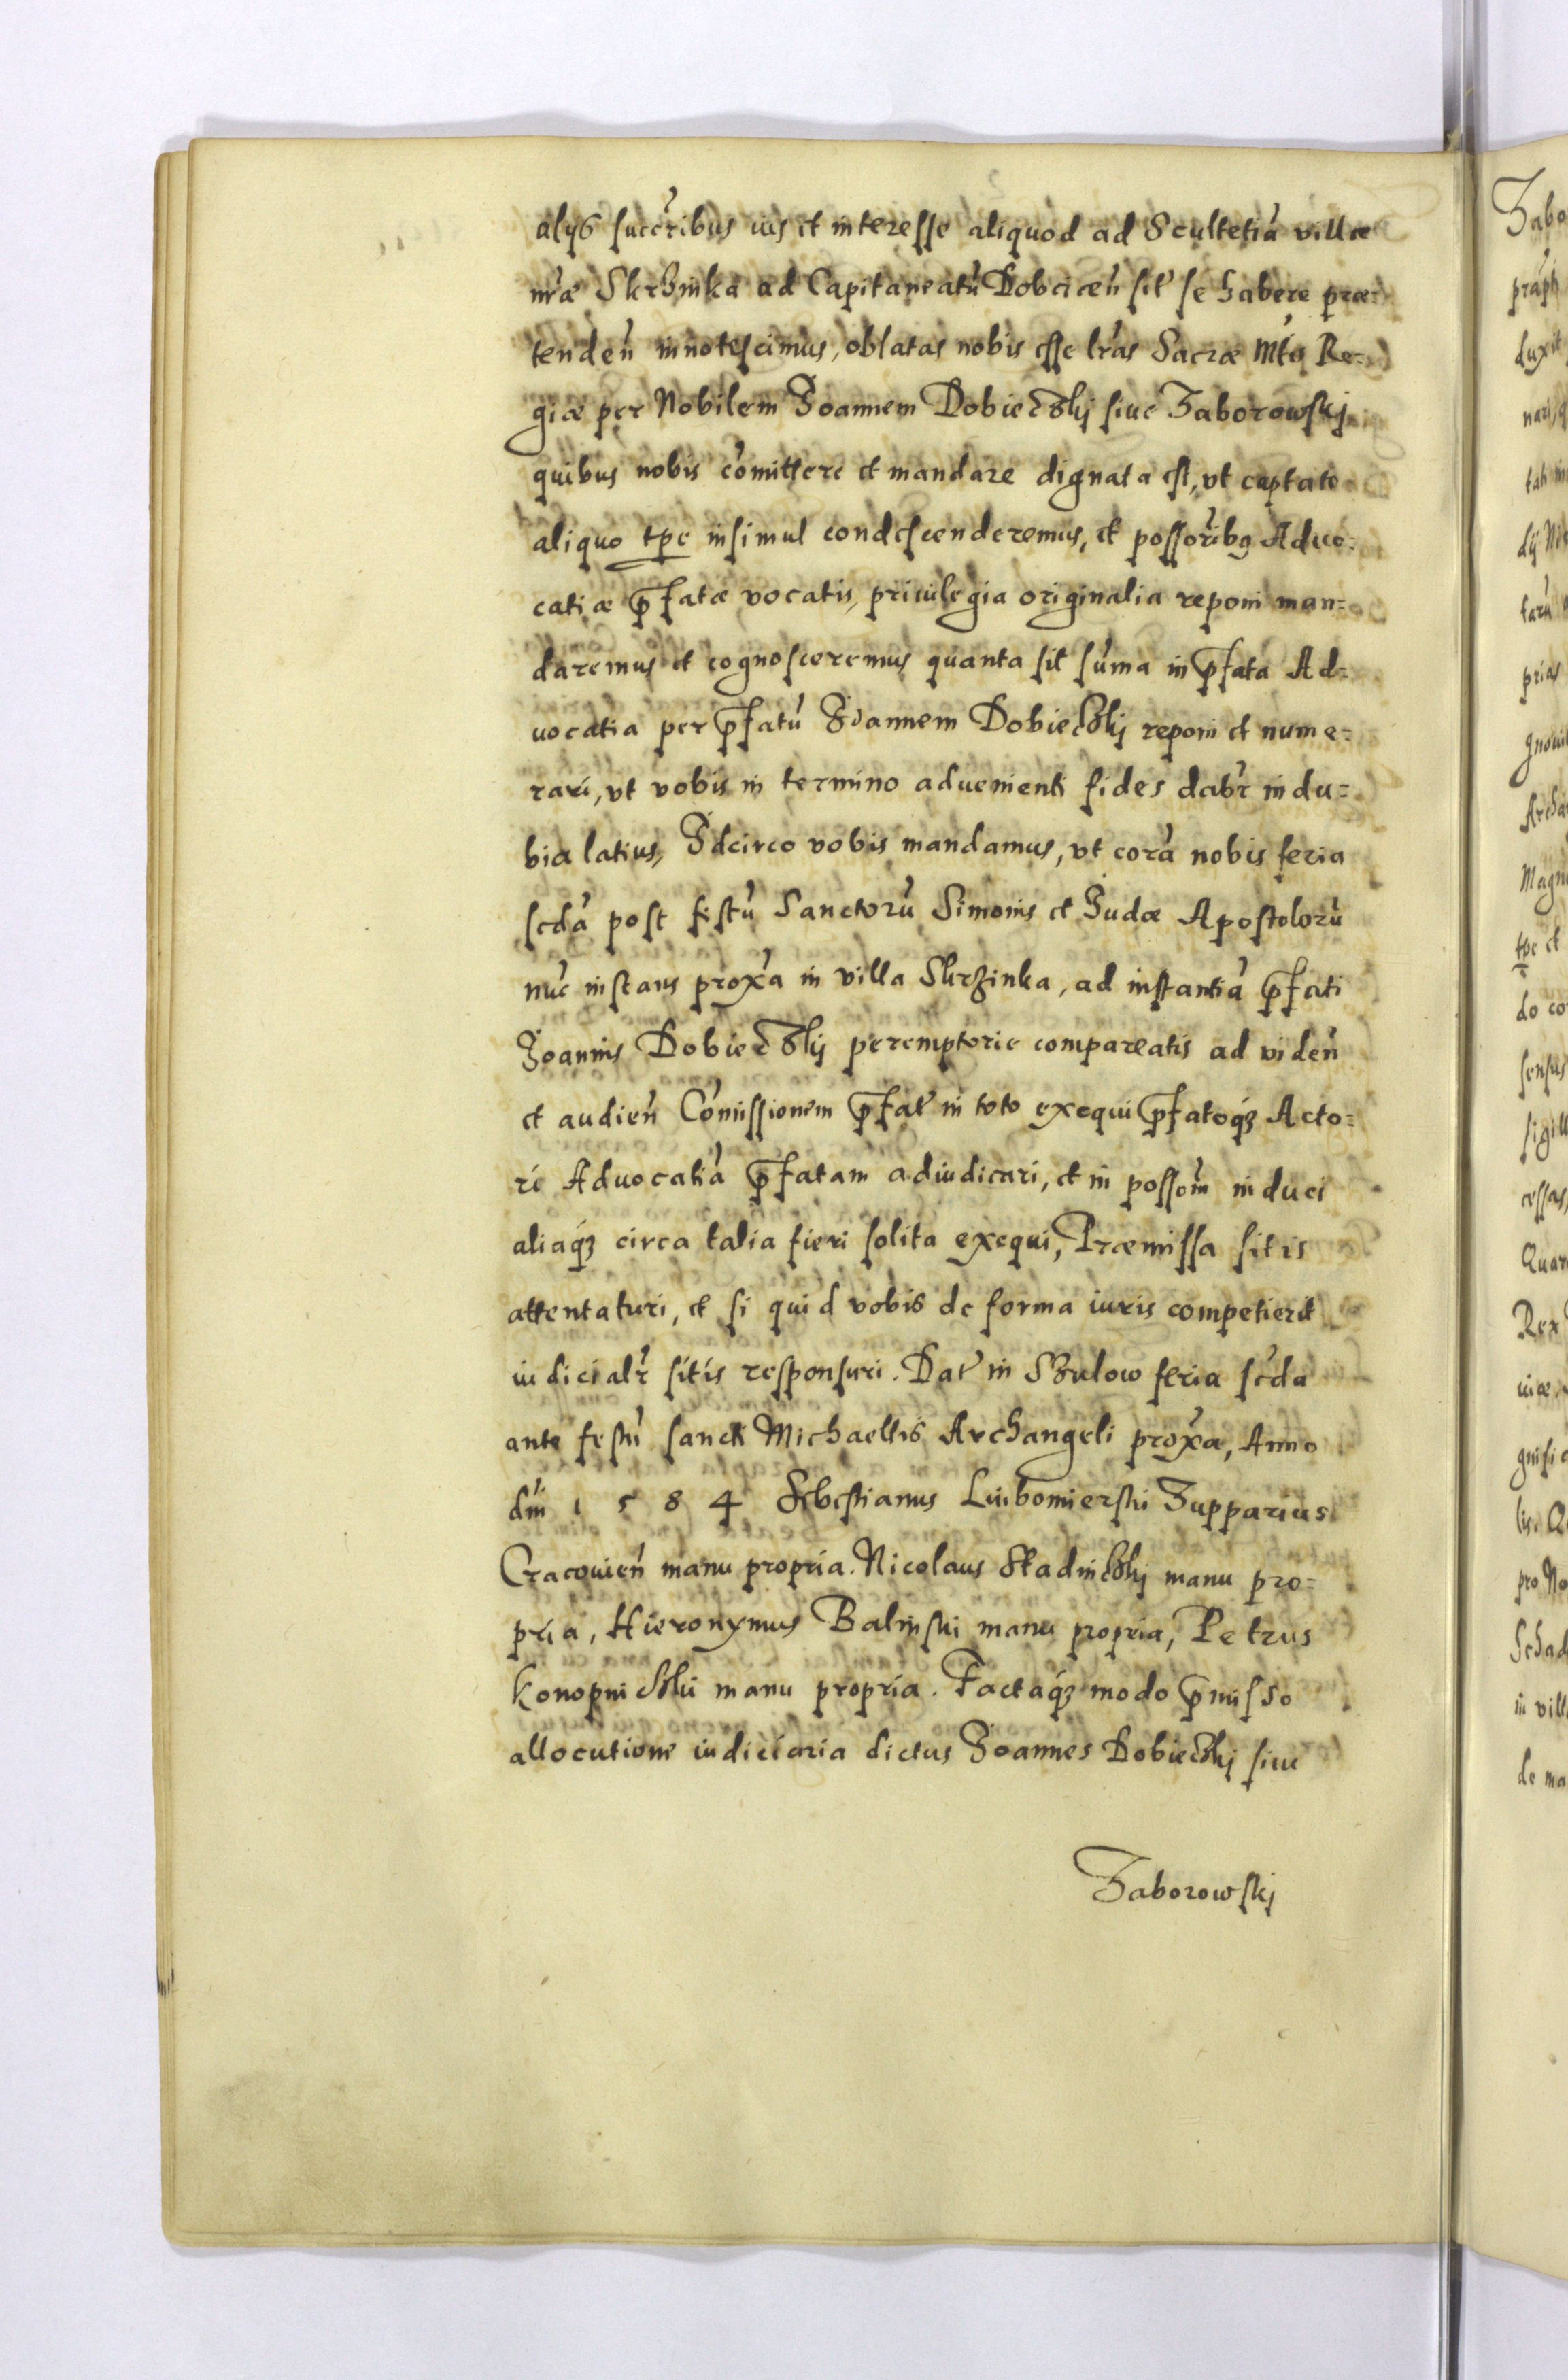 alijs succribus ius et interesse aliquod ad Scultetiā villæ
nr̃æ Skrzinka ad Capitaneatū Dobcicen̄ sit̃ se habere præ=
tenden̄ innotescimus, oblatas nobis esse lr̃as Sacræ Mt̃is Re=
giæ per Nobilem Joannem Dobieczkij siue Zaborowskij
quibus nobis com̄ittere et mandare dignata est, vt captato
aliquo tp̱e insimul condescenderemus, et possor̃ibꝫ Aduo=
catiæ p̄fatæ vocatis, priuilegia originalia reponi man=
daremus et cognosceremus quanta sit sum̄a in p̄fata Ad=
uocatia per p̄fatū Joannem Dobieczkij reponi et nume=
rari, vt vobis in termino aduenienti fides dabr̃ indu=
bia latius, Idcirco vobis mandamus, vt corā nobis feria
scd̃a post festū Sanctorū Simonis et Judæ Apostolorū
nūc instans prox̃a in villa Skrzinka, ad instantiā p̄fati
Joannis Dobieczkij peremptorie compareatis ad viden̄
et audien̄ Com̄issionem p̄fat̃ in toto exequi p̄fatoqꝫ Acto=
ri Aduocatiā p̄fatam adiudicari, et in possom̃ induci
aliaqꝫ circa talia fieri solita exequi, Præmissa sitis
attentaturi, et si quid vobis de forma iuris competierit
iudicialr̃ sitis responsuri. Dat̃ in Szulow feria scd̃a
ante festū sancti Michaellis Archangeli prox̃a, Anno
dn̄i 1584 Sebestianus Luibomierski Zupparius
Cracouien̄ manu propria. Nicolaus Stadniczkij manu pro=
pria, Hieronymus Balinski manu propria, Petrus
Konopniczki manu propria. Factaqꝫ modo p̄misso
allocutione iudiciaria dictus Joannes Dobieczkij siue
Zaborowskij